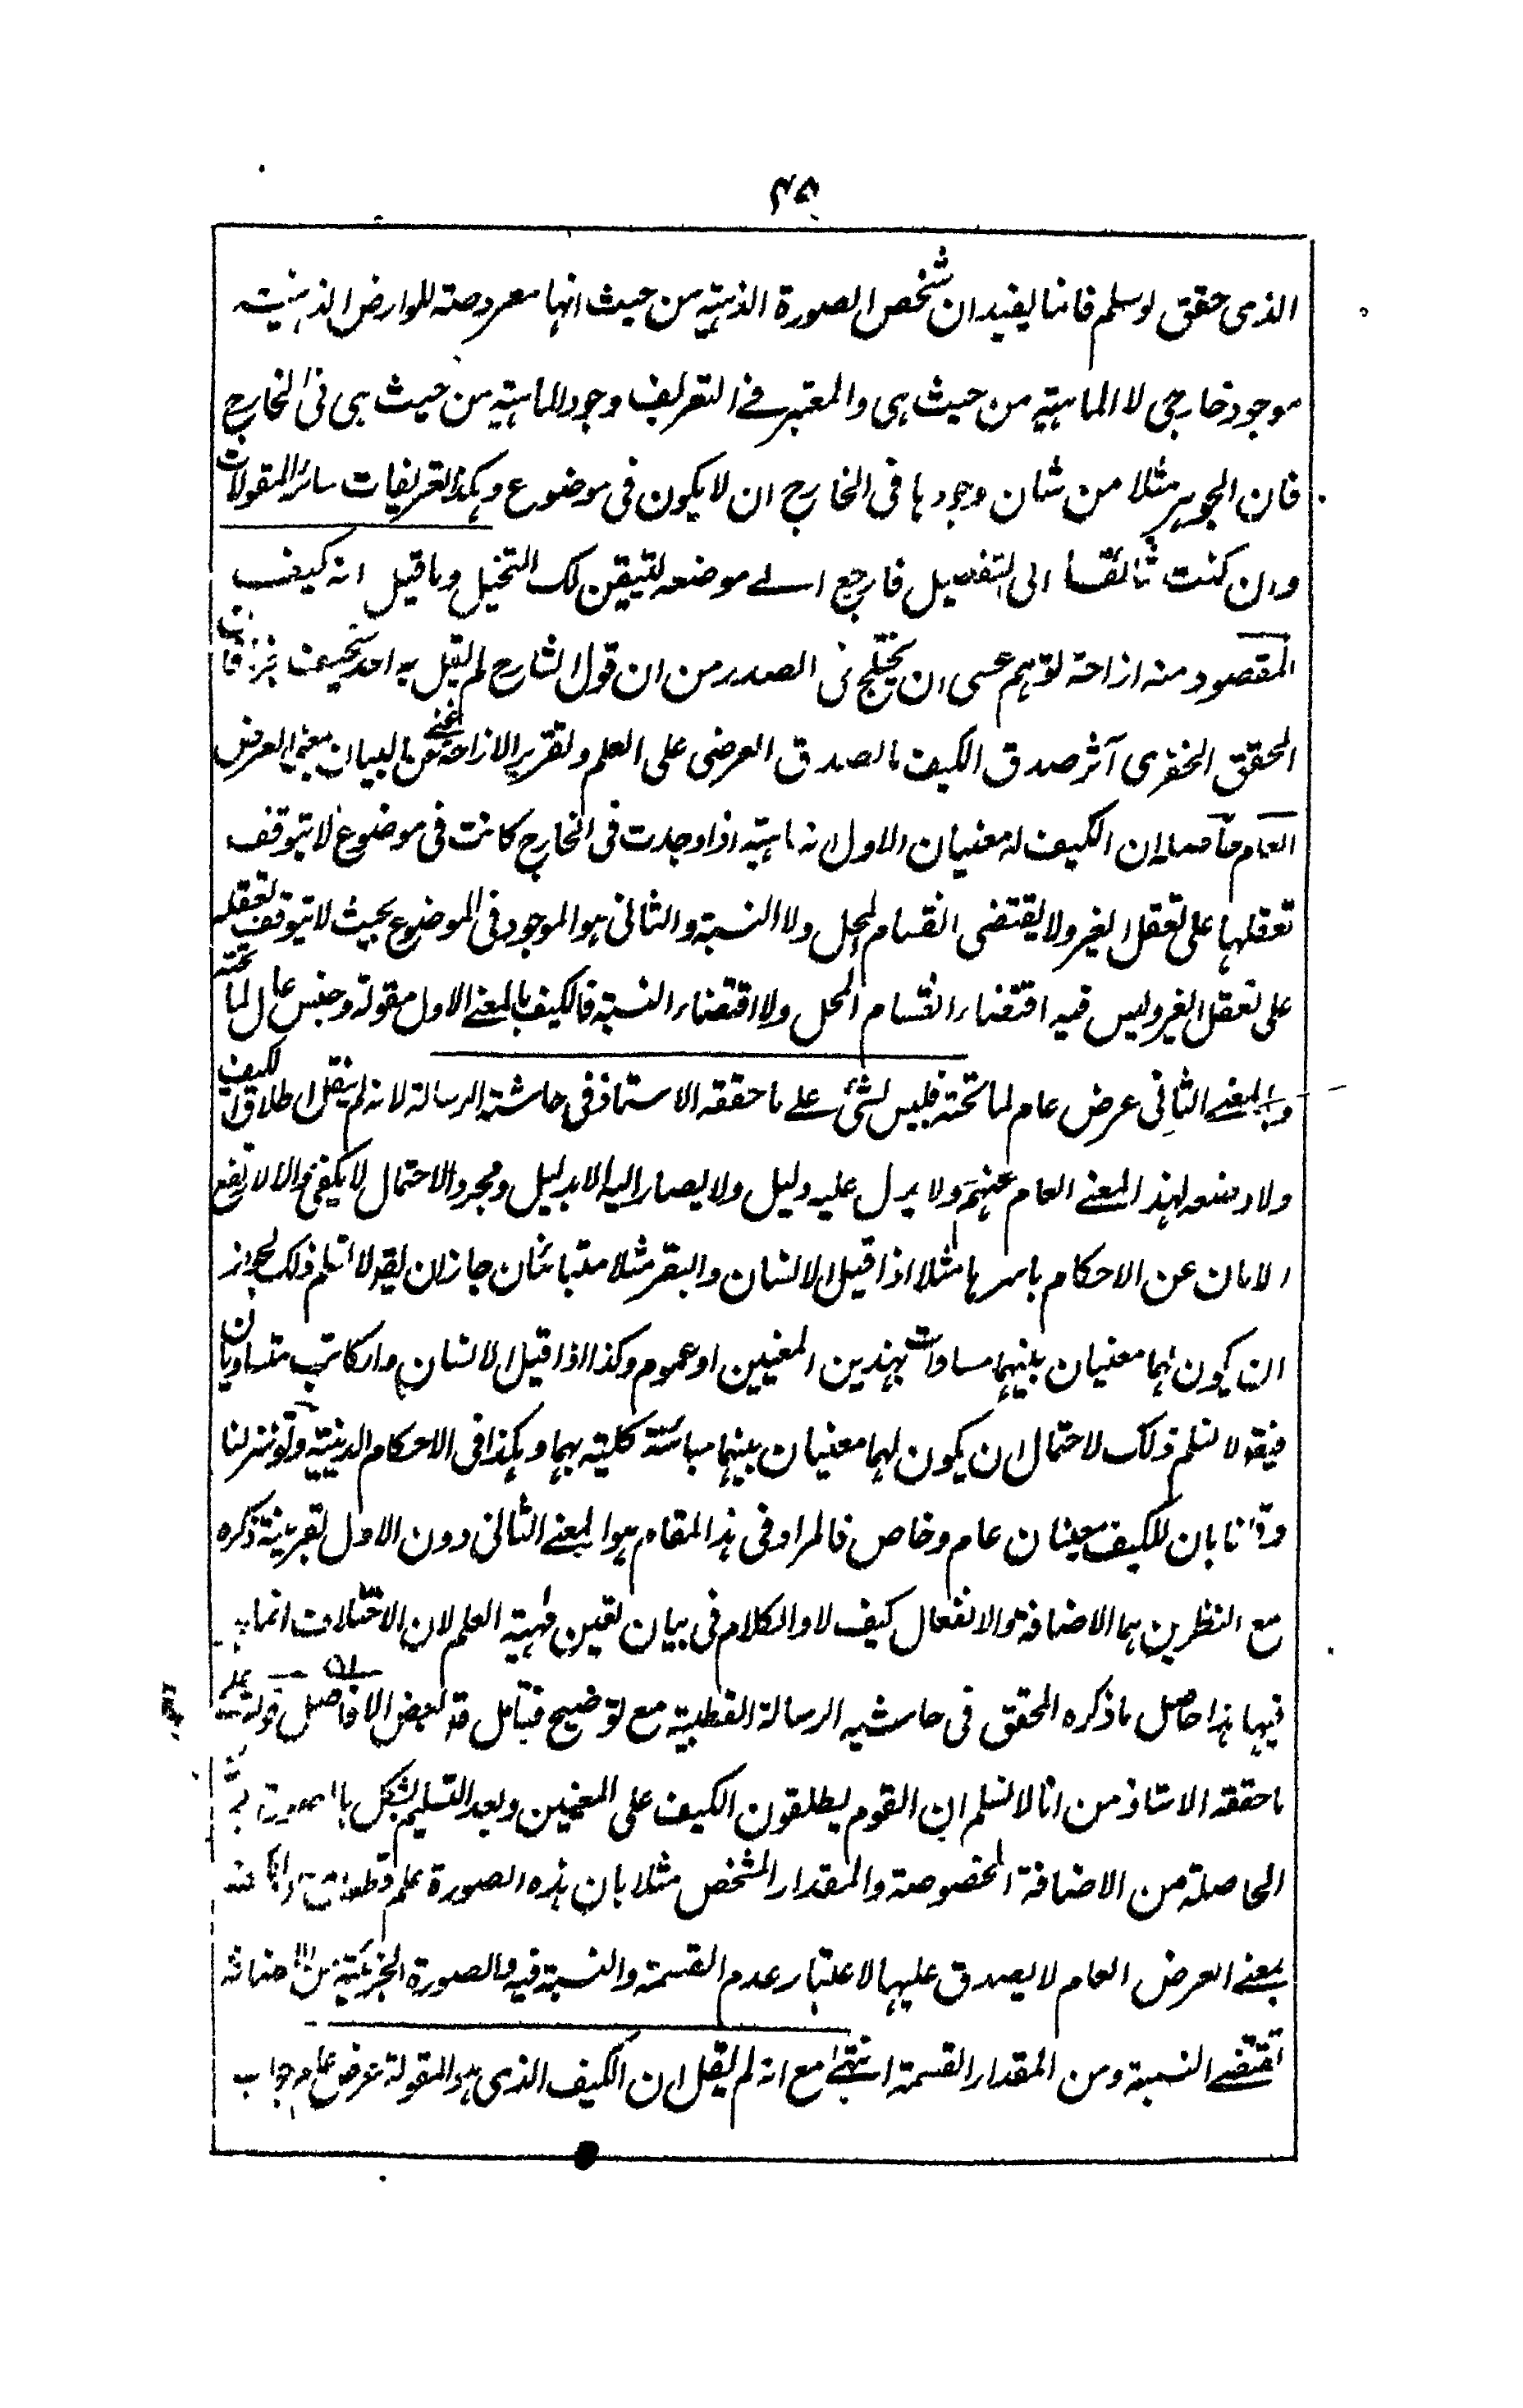 ٤٥
الذى حقق لوسلم فانما يفيد ان شخص الصورة الذهنية من حيث انها معروضة للعوارض الذهنية
موجود خارجى لا الماهية من حيث هى والمعتبر فى التعريف وجود الماهية من حيث هى فى الخارج
فان الجوهر مثلا من شان وجودها فى الخارج ان لا يكون فى موضوع وهكذا تعريفات سائر المقولات
وان كنت شائقا الى التفصيل فارجع الى موضعه لتيقن لك التخيل وما قيل انه كيف
المقصود منه ازاحة لتوهم عسى ان يختلج فى الصدر من ان قول الشارح لم يقل به احد سخيف فان
المحقق الخفرى آثر صدق الكيف بالصدق العرضى على العلم وتقرير الازاحة غنى عن البيان معنى العرض
العام حاصله ان الكيف له معنيان الاول انه ماهية اذا وجدت فى الخارج كانت فى موضوع لا يتوقف
تعقلها على تعقل الغير ولا يقتضى انقسام المحل ولا النسبة والثانى هو الموجود فى الموضوع بحيث لا يتوقف تعقله
على تعقل الغير وليس فيه اقتضاء انقسام المحل ولا اقتضاء النسبة فالكيف بالمعنى الاول مقولة وجنس عال لما تحته
وبالمعنى الثانى عرض عام لما تحته فليس لشئ على ما حققه الاستاذ فى حاشية الرسالة لانه لم ينقل اطلاق الكيف
ولا وضعه لهذا المعنى العام عنهم ولا يدل عليه دليل ولا يصار اليه الا بدليل ومجرد الاحتمال لا يكفى والا لارتفع
الامان عن الاحكام باسرها مثلا اذا قيل الانسان والبقر مثلا متبائنان جاز ان يقه لا نسلم ذلك لجواز
ان يكون لهما معنيان بينهما مساوات بهذين المعنيين او عموم وكذا اذا قيل الانسان والكاتب متساويان
فيقه لا نسلم ذلك لاحتمال ان يكون لهما معنيان بينهما مبائنة كلية بهما وهكذا فى الاحكام الدينية ولو تنزلنا
وقلنا بان للكيف معنيان عام وخاص فالمراد فى هذا المقام هو المعنى الثانى دون الاول لقرينة ذكره
مع النظرين هما الاضافة والانفعال كيف لا والكلام فى بيان تعيين ماهية العلم لان الاختلاف انما هو
فيها هذا حاصل ما ذكره المحقق فى حاشيه الرسالة القطبية مع توضيح فتأمل قه لبعض الافاضل قوله على
ما حققه الاستاذ من انا لا نسلم ان القوم يطلقون الكيف على المعنيين وبعد التسليم يشكل بالصورة
الحاصلة من الاضافة المخصوصة والمقدار المشخص مثلا بان هذه الصورة علم قطعا
بمعنى العرض العام لا يصدق عليها لاعتبار عدم القسمة والنسبة فيه والصورة الجزئية من الاضافة
تقتضى النسبة ومن المقدار القسمة انتهى مع انه لم يقل ان الكيف الذى هو المقولة عرض عام وجواب